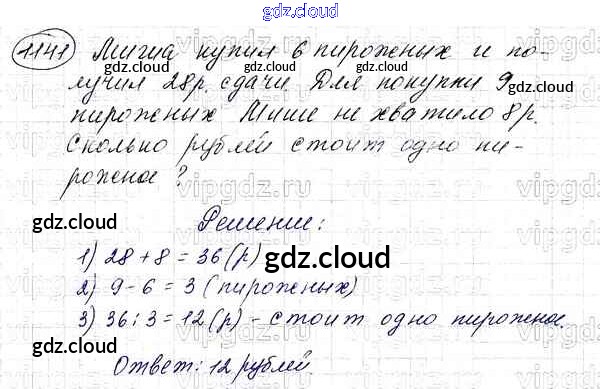 gdz.cloud
1141 Миша купил 6 пирожных и по-
лучил 28р. сдачи. Для покупки 9
пирожных Мише не хватило 8р.
Сколько рублей стоит одно пи-
рожное?
gdz.cloud
Решение:
1) 28 + 8 = 36 (р)
2) 9 - 6 = 3 (пирожных)
3) 36 : 3 = 12 (р) - стоит одно пирожное.
Ответ: 12 рублей.
gdz.cloud
vipgdz.ru